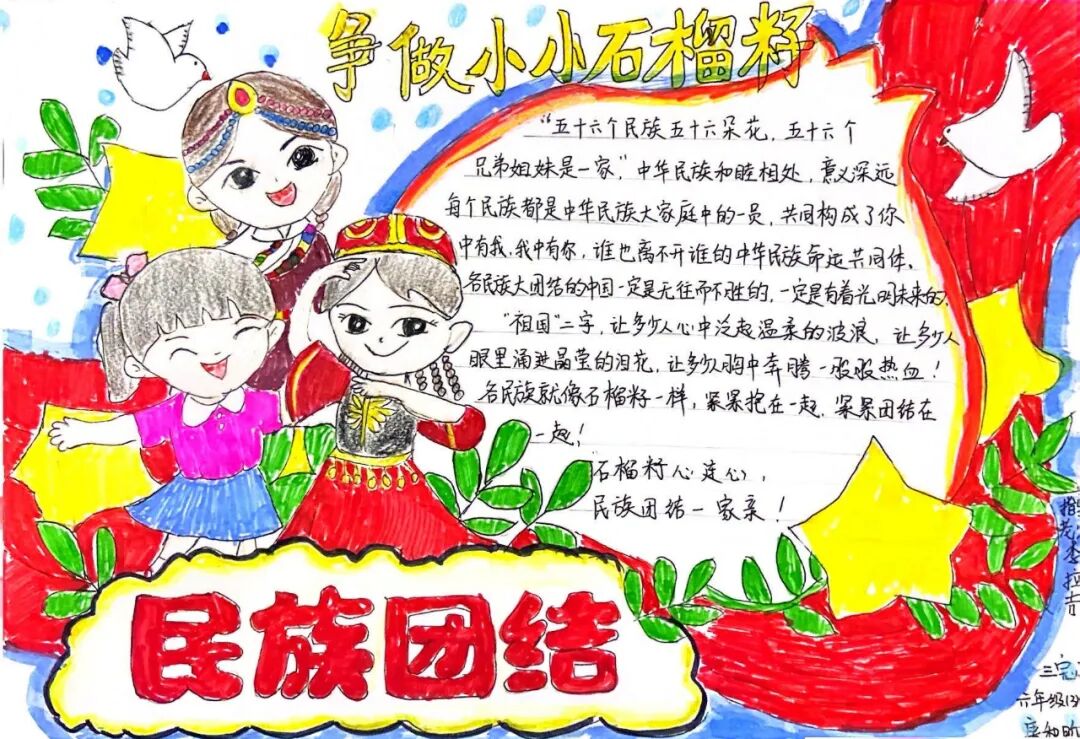 争做小小石榴籽
“五十六个民族五十六朵花，五十六个
兄弟姐妹是一家，”中华民族和睦相处，意义深远
每个民族都是中华民族大家庭中的一员，共同构成了你
中有我，我中有你，谁也离不开谁的中华民族命运共同体，
各民族大团结的中国一定是无往而不胜的，一定是有着光明未来的，
“祖国”二字，让多少人心中泛起温柔的波浪，让多少人
眼里涌进晶莹的泪花，让多少人胸中奔腾一股股热血！
各民族就像石榴籽一样，紧紧抱在一起，紧紧团结在
一起！
石榴籽心连心，
民族团结一家亲！
民族团结
三完
六年级(3